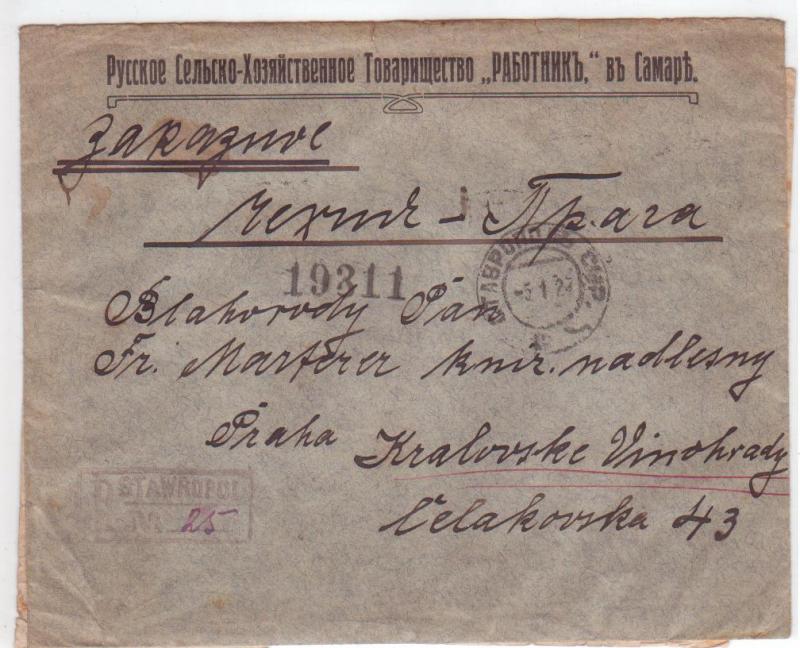 Русское Сельско-Хозяйственное Товарищество „РАБОТНИКЪ,“ въ Самарѣ.
Заказное
Чехия - Прага
19311
СТАВРОПОЛЬ СМР.
-5 1 24
Blahorody Pan
Fr. Marterer kníž. nadlesny
Praha Kralovske Vinohrady
STAWROPOL
R № 25
Čelakovska 43